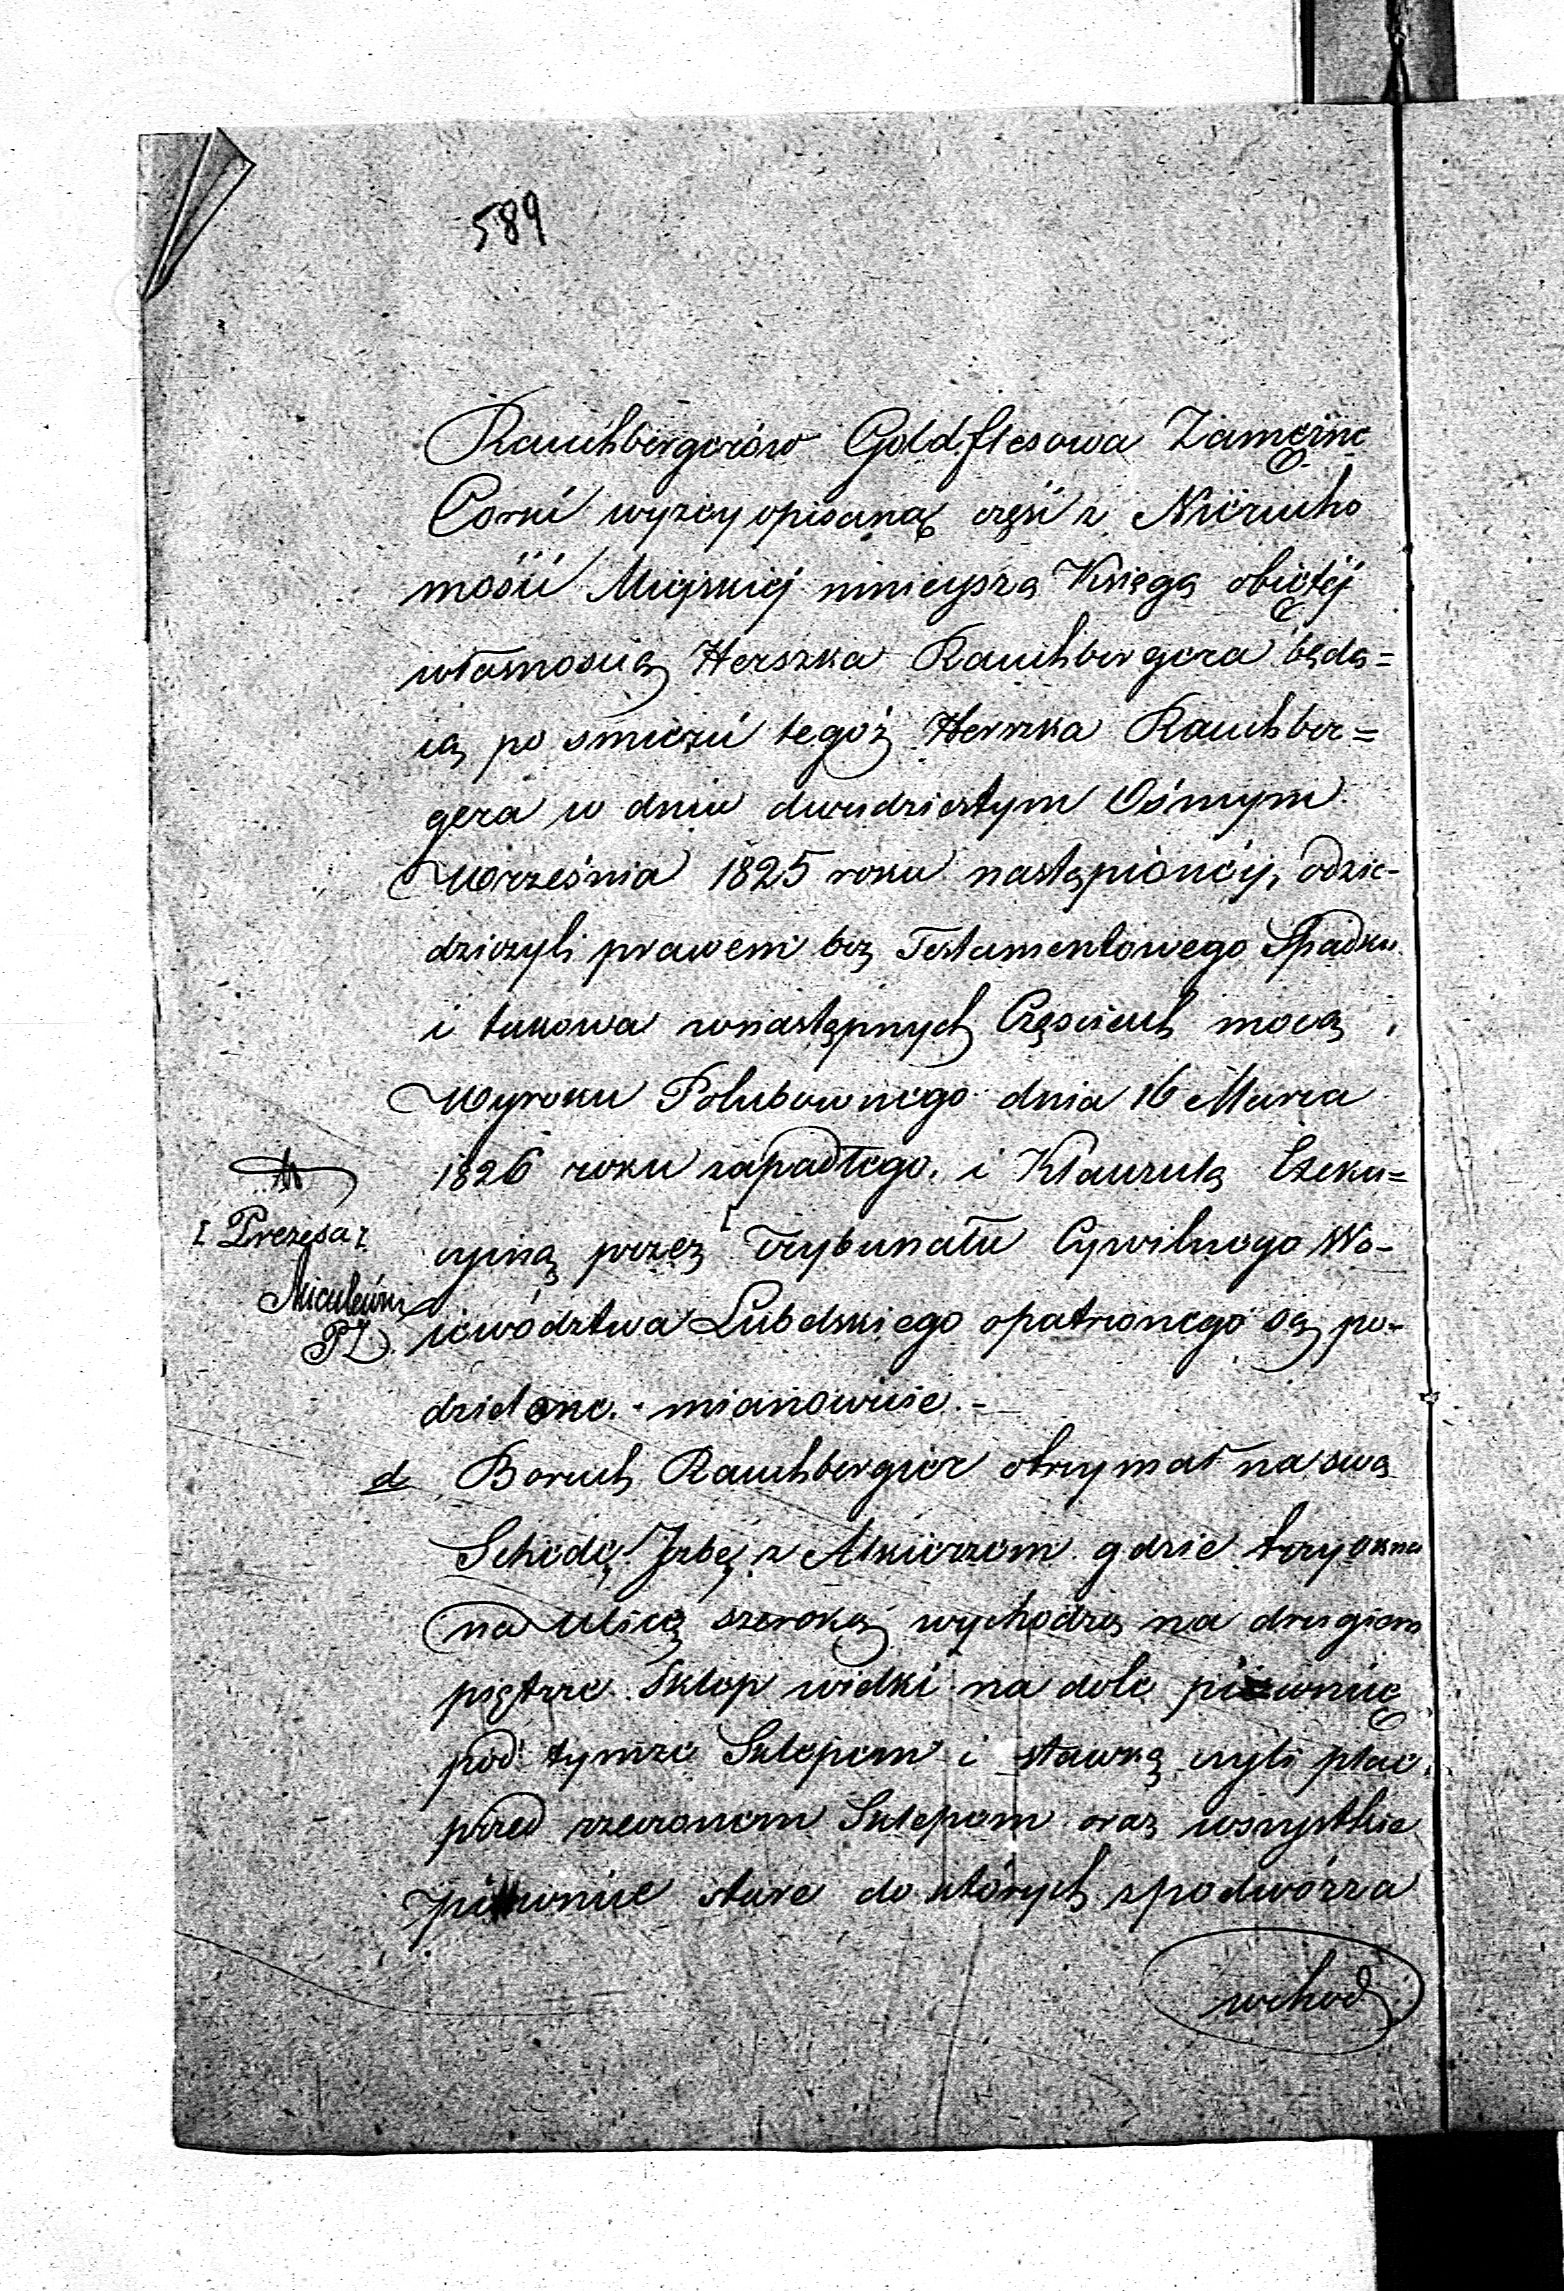 589
Rauchbergerów Goldflesowa Zamężne
Corki wyżey opisaną część z Nierucho
mości Mieyskiej ninieyszą Księgą obiętéj
własnoscią Herszka Rauchbergera będą=
cą po smierci tegoż Herszka Rauchber=
gera w dniu dwudziestym Osmym
Września 1825 roku nastąpionéy, odzie-
dziczyli prawem bez Testamentowego Spadku
i takowa wnastępnych Częsciach mocą
Wyroku Polubownego dnia 16 Marca
1826 roku zapadłego, i Klauzulą Exeku=
cyiną przez [ Trybunału Cywilnego Wo-
[ Prezesa ]
PZ
iewództwa Lubelskiego opatrzonego są po-
dzielone. - mianowicie. -
d Boruch Rauchberger otrzymał na swą
Schedę Izbę z Alkierzem gdzie trzy okna
na ulicę szeroką wychodzą na drugiem
piętrze Sklep wielki na dole piwnicę
pod tymże Sklepem i stawką czyli plac
przed rzeczonem Sklepem oraz wszystkie
piwnice stare do których zpodwórza
wchod